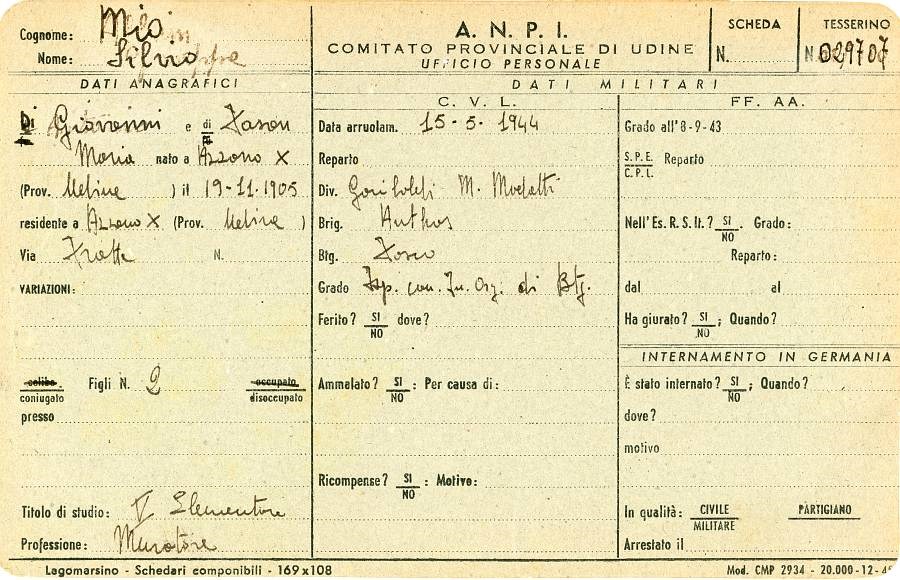 Cognome: Mio
Nome: Silvio
A. N. P. I.
COMITATO PROVINCIALE DI UDINE
UFFICIO PERSONALE
SCHEDA
N.
TESSERINO
N. 029707
DATI ANAGRAFICI
Di Giovanni e di
Maria nato a Azzano X
(Prov. Udine ) il 19-11.1905
residente a Azzano X (Prov. Udine )
Via Fratte N.
VARIAZIONI:
celibe Figli N. 2 occupato
coniugato disoccupato
presso
Titolo di studio: V Elementare
Professione: Muratore
DATI MILITARI
C. V. L.
Data arruolam. 15-5-1944
Reparto
Div. Garibaldi M. Modotti
Brig. Anthos
Btg.
Grado Isp. con. In. Org. di Btg.
Ferito? SI NO dove?
Ammalato? SI NO : Per causa di:
Ricompense? SI NO : Motivo:
FF. AA.
Grado all'8-9-43
S.P.E. C.P.L. Reparto
Nell'Es. R. S. It.? SI NO Grado:
Reparto:
dal al
Ha giurato? SI NO ; Quando?
INTERNAMENTO IN GERMANIA
È stato internato? SI NO ; Quando?
dove?
motivo
In qualità: CIVILE MILITARE PARTIGIANO
Arrestato il
Lagomarsino - Schedari componibili - 169x108
Mod. CMP 2934 - 20.000-12-4